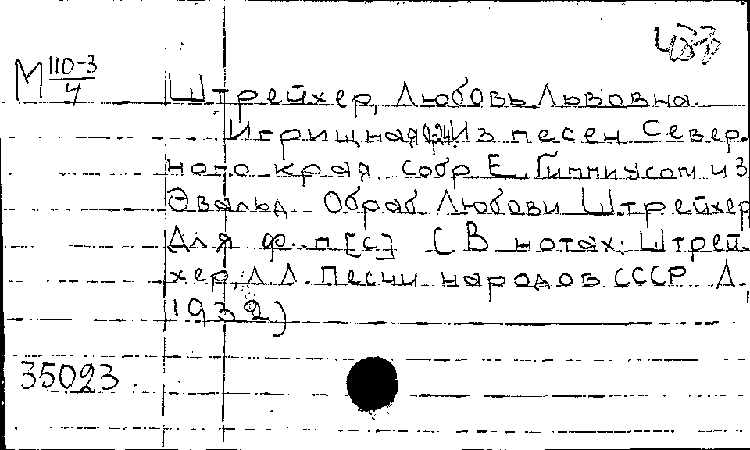 433
М 110-3/4
Штрейхер, Любовь Львовна.
Игрищная Из песен Север-
ного края. собр Е. Гиппиусом и З
Эвальд. Обраб Любови Штрейхер
Для ф. п [с] [В нотах: Штрей-
хер, Л Л. Песни народов СССР Л,
1932)
35023.